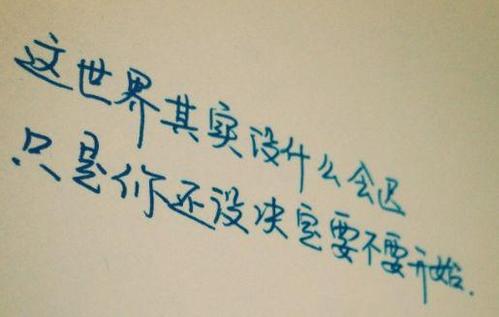 这世界其实没什么会迟
只是你还没决定要不要开始.